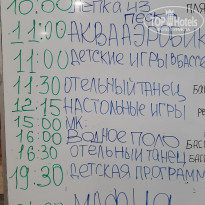 ЛЕПКА ИЗ
TopHotels
11:00 АКВААЭРОБИК
11:00 ДЕТСКИЕ ИГРЫ В БАССЕ
11:30 ОТЕЛЬНЫЙ ТАНЕЦ
12:15 НАСТОЛЬНЫЕ ИГРЫ
15:00 МК:
16:00 ВОДНОЕ ПОЛО
16:30 ОТЕЛЬНЫЙ ТАНЕЦ
19:30 ДЕТСКАЯ ПРОГРАММ